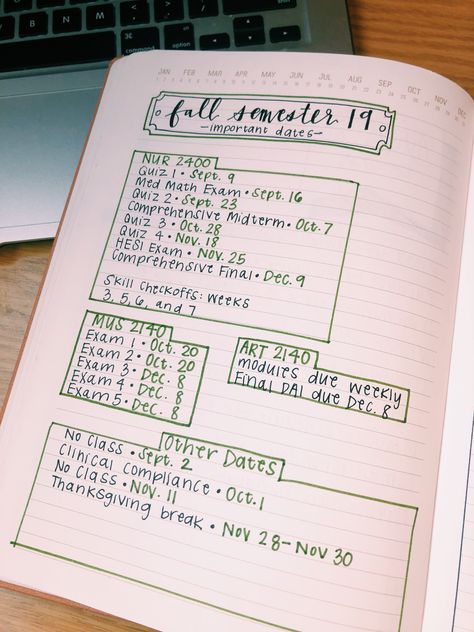 JAN FEB MAR APR MAY JUN JUL AUG SEP OCT NOV DEC
fall semester 19
-important dates-
NUR 2400
Quiz 1 • Sept. 9
Med Math Exam • Sept. 16
Quiz 2 • Sept. 23
Comprehensive Midterm • Oct. 7
Quiz 3 • Oct. 28
Quiz 4 • Nov. 18
HESI Exam • Nov. 25
Comprehensive Final • Dec. 9
Skill Checkoffs: Weeks
3, 5, 6, and 7
MUS 2140
Exam 1 • Oct. 20
Exam 2 • Oct. 20
Exam 3 • Dec. 8
Exam 4 • Dec. 8
Exam 5 • Dec. 8
ART 2140
modules due weekly
Final DAI due Dec. 8
Other Dates
No Class • Sept. 2
Clinical Compliance • Oct. 1
No Class • Nov. 11
Thanksgiving break • Nov 28 - Nov 30